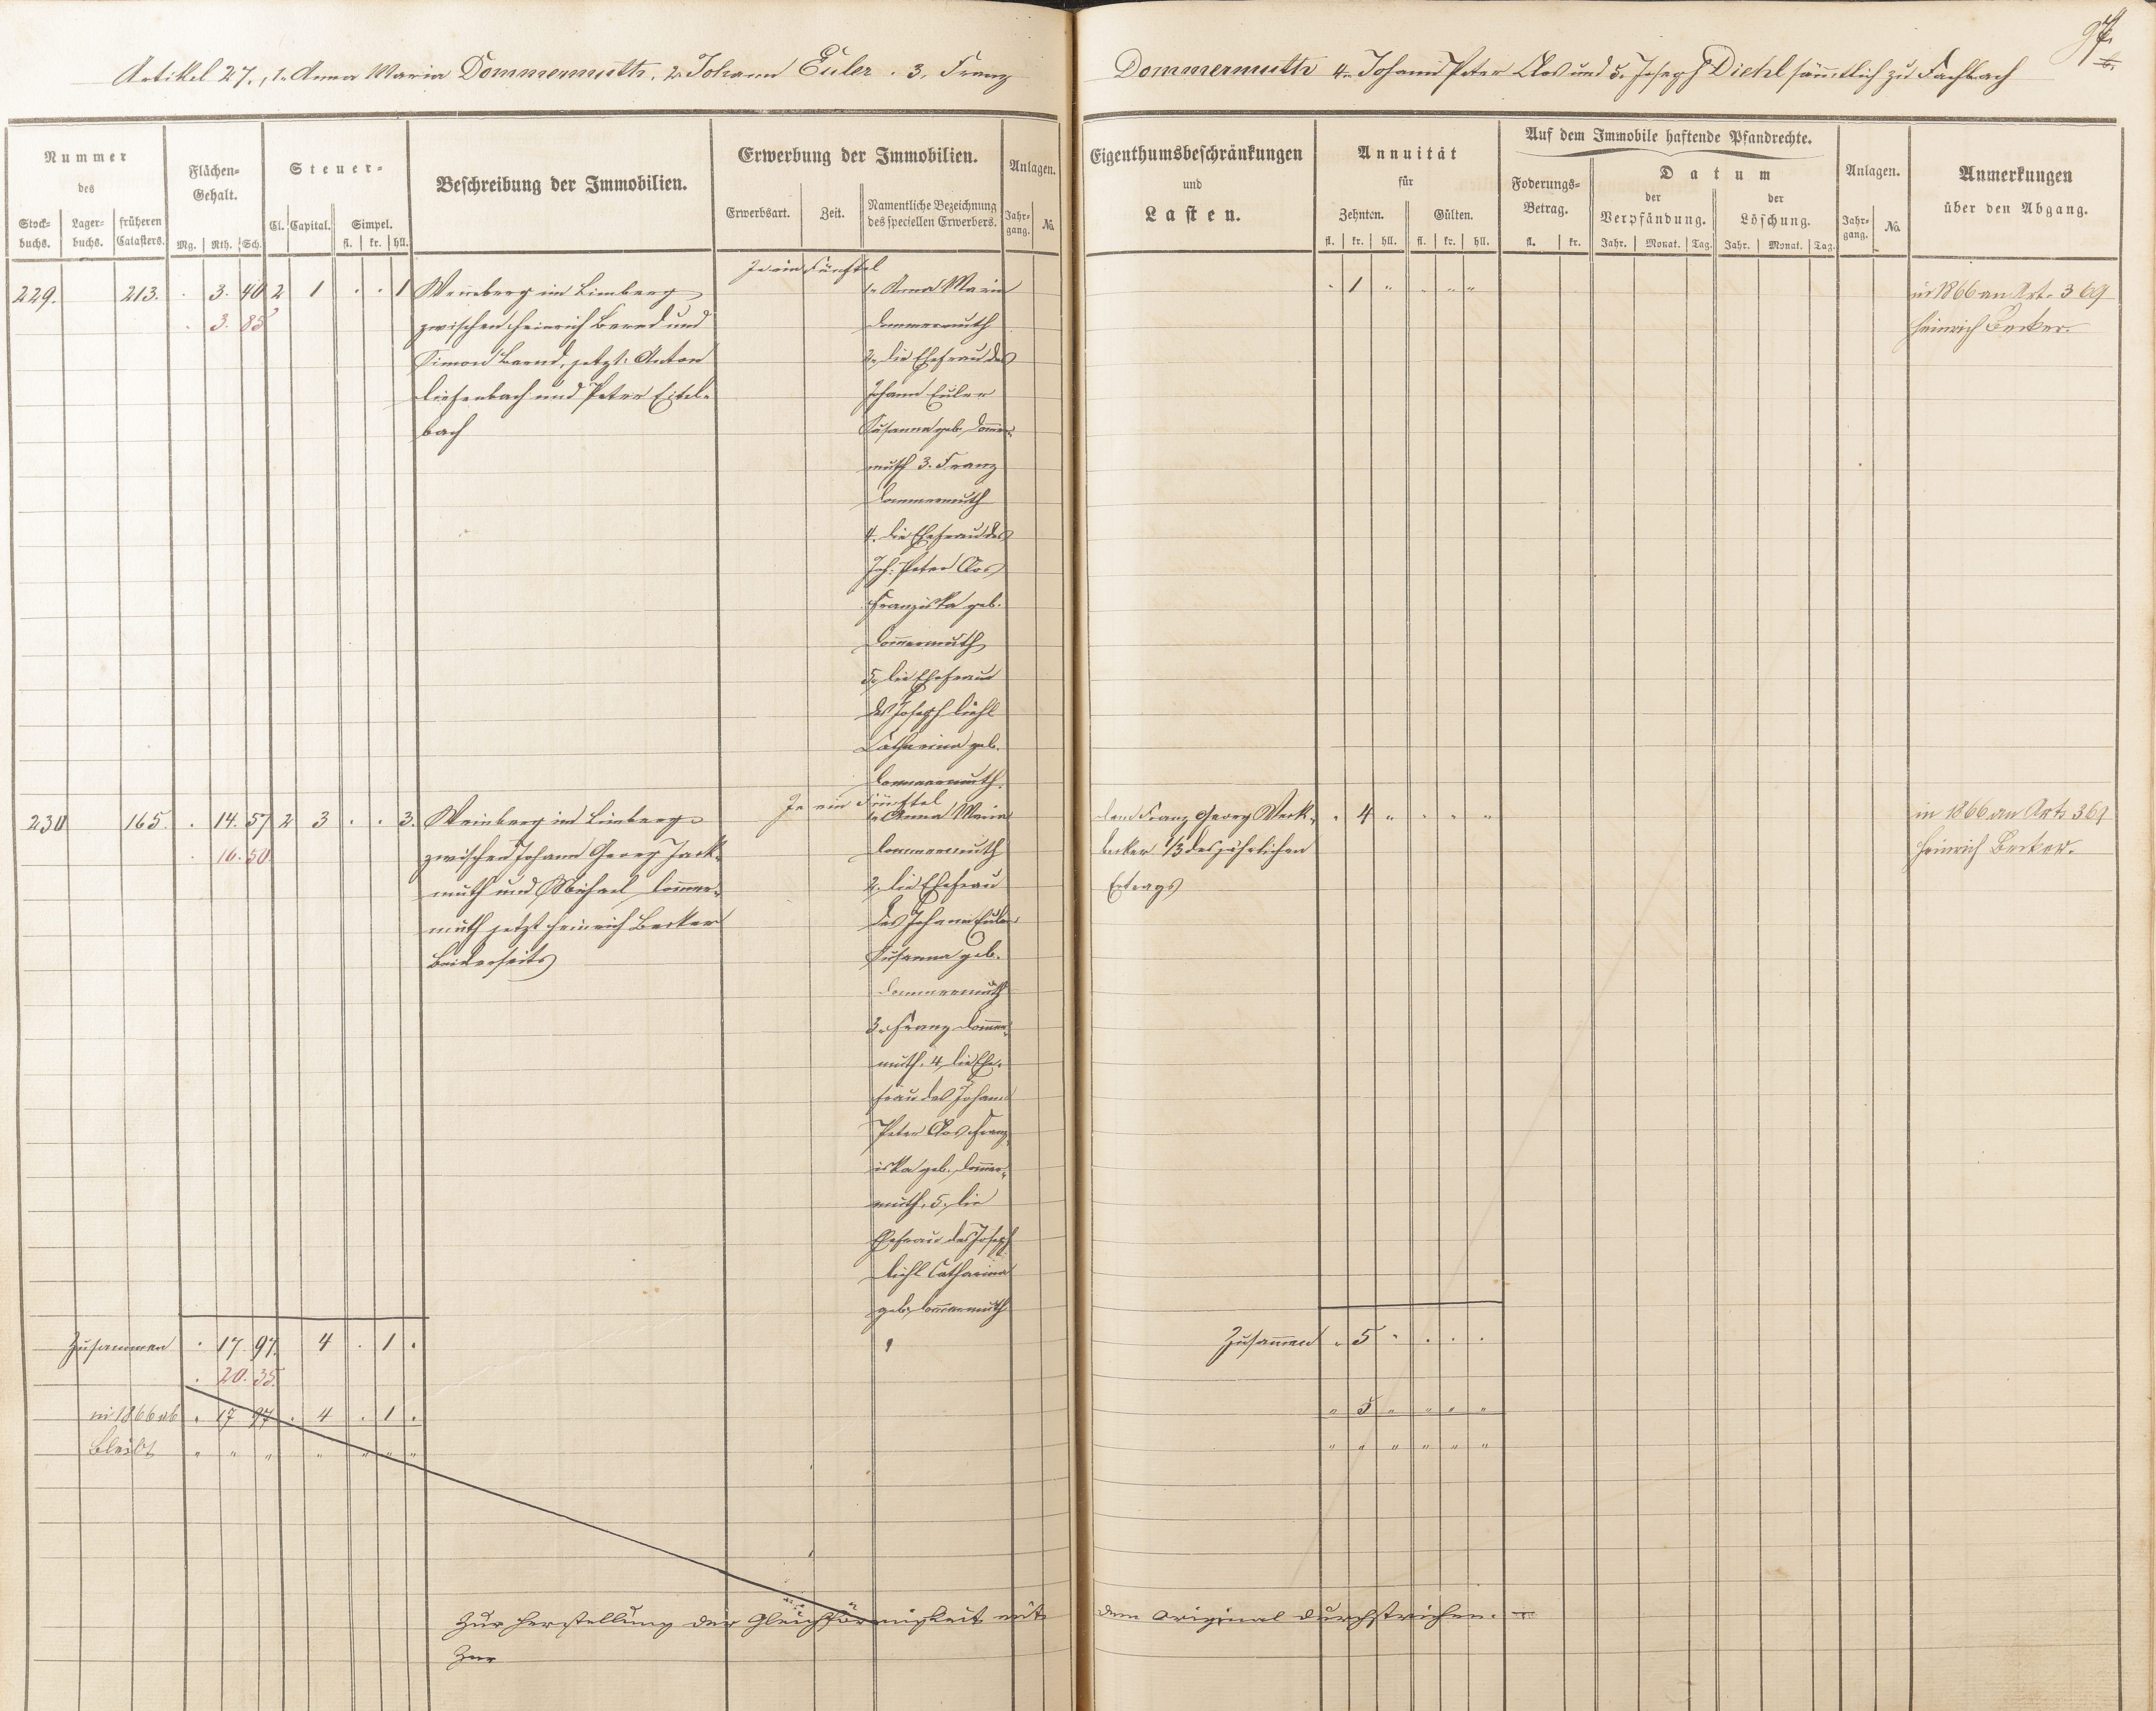 Artikel 27., 1. Anna Maria Dommermuth. 2. Johann Euler. 3. Franz Dommermuth 4. Johann Peter Clos und 5. Joseph Diehl sämmtlich zu Fachbach
Nummer des
Stockbuchs. Lagerbuchs. früheren Catasters.
Flächen-Gehalt.
Mg. Rth. Sch.
Steuer-
Cl. Capital. Simpel.
fl. kr. hll.
Beschreibung der Immobilien.
Erwerbung der Immobilien.
Erwerbsart. Zeit. Namentliche Bezeichnung des speciellen Erwerbers.
Anlagen.
Jahrgang. No.
Eigenthumsbeschränkungen
und
Lasten.
Annuität
für
Zehnten. Gülten.
fl. kr. hll. fl. kr. hll.
Auf dem Immobile haftende Pfandrechte.
Foderungs-Betrag.
fl. kr.
Datum
der Verpfändung. der Löschung.
Jahr. Monat. Tag. Jahr. Monat. Tag.
Anlagen.
Jahrgang. No.
Anmerkungen
über den Abgang.
Je ein Fünftel
229. 213. . 3. 40 2 1 . . 1 Weinberg im Limberg
. 3. 85
zwischen Heinrich Bernd und
Simon Barnd, jetzt: Anton
Liesenbach und Peter Eitel-
bach
1. Anna Maria
Dommermuth
2. die Ehefrau des
Johann Euler
Susanna geb. Dommer-
muth 3. Franz
Dommermuth
4. die Ehefrau des
Joh. Peter Clos
Franziska geb.
Dommermuth
5. die Ehefrau
des Joseph Diehl
Catharina geb.
Dommermuth.
. 1 " . " "
in 1866 an Art. 369
Heinrich Becker.
Je ein Fünftel
230 165. . 14. 57 2 3 . . 3. Weinberg im Limberg
. 16. 50.
zwischen Johann Georg Jack-
muth und Michael Dommer-
muth jetzt Heinrich Becker
beiderseits
1. Anna Maria
Dommermuth
2. die Ehefrau
des Johann Euler
Susanna geb.
Dommermuth
3. Franz Dommer-
muth. 4. die Ehe-
frau des Johann
Peter Clos Franz-
iska geb. Dommer-
muth. 5. die
Ehefrau des Joseph
Diehl Catharina
geb. Dommermuth
dem Franz Georg Werk-
becker 1/3 des jährlichen
Ertrags
. 4 " . . "
in 1866 an Art. 369
Heinrich Becker.
Zusammen . 17. 97. 4 . 1 .
. 20. 35.
in 1866 ab . 17 97 . 4 . 1 .
Bleibt " " " " " " "
Zusammen . 5 . . . .
" 5 " " " "
" " " " " "
Zur Herstellung der Gleichförmigkeit mit dem Original durchstrichen.
Zur